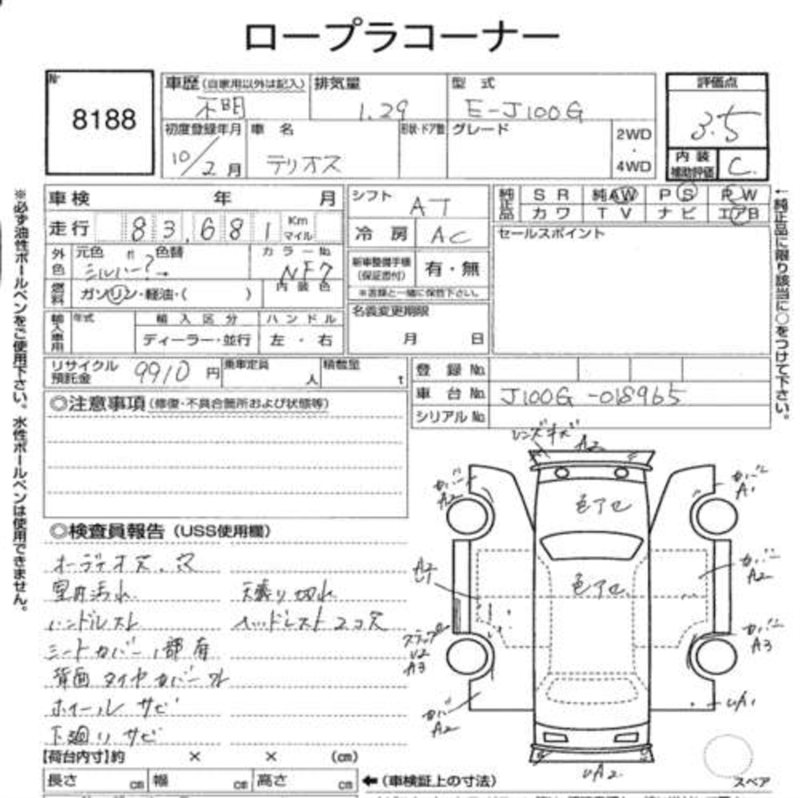 ロープラコーナー
Nr 8188
車歴 (自家用以外は記入) 不明
排気量 1.29
型式 E-J100G
評価点 3.5
初度登録年月 10/2月
車名 テリオス
形状・ドア数
グレード
2WD・4WD
内装補助評価 C
※必ず油性ボールペンをご使用下さい。水性ボールペンは使用できません。
車検 年 月
シフト AT
純正品 SR 純AW PS PW
カワ TV ナビ エアB
走行 83,681 Km マイル
冷房 AC
セールスポイント
外色 元色 シルバー?→ 色替
カラーNo. NF7
新車整備手帳(保証書付) 有・無
※書類と一緒に保管下さい。
燃料 ガソリン・軽油・( )
内装色
名義変更期限 月 日
輸入車用 年式 輸入区分 ハンドル
ディーラー・並行 左・右
←純正品に限り該当に○をつけて下さい。
リサイクル預託金 9910円
乗車定員 人
積載量 t
登録No.
車台No. J100G-018965
シリアルNo.
◎注意事項 (修復・不具合箇所および状態等)
◎検査員報告 (USS使用欄)
室内汚れ 天張り切れ
ハンドルスレ ヘッドレスト2コ欠
シートカバー1部有
背面タイヤカバー
ホイールサビ
下廻りサビ
レンズキズ A2
カバーA2
カバーA1
色アセ
色アセ
カバーA2
ステップU2 A3
カバーA3
カバーA2
UA1
UA2
スペア
【荷台内寸】約 × × (cm)
長さ cm 幅 cm 高さ cm
←(車検証上の寸法)